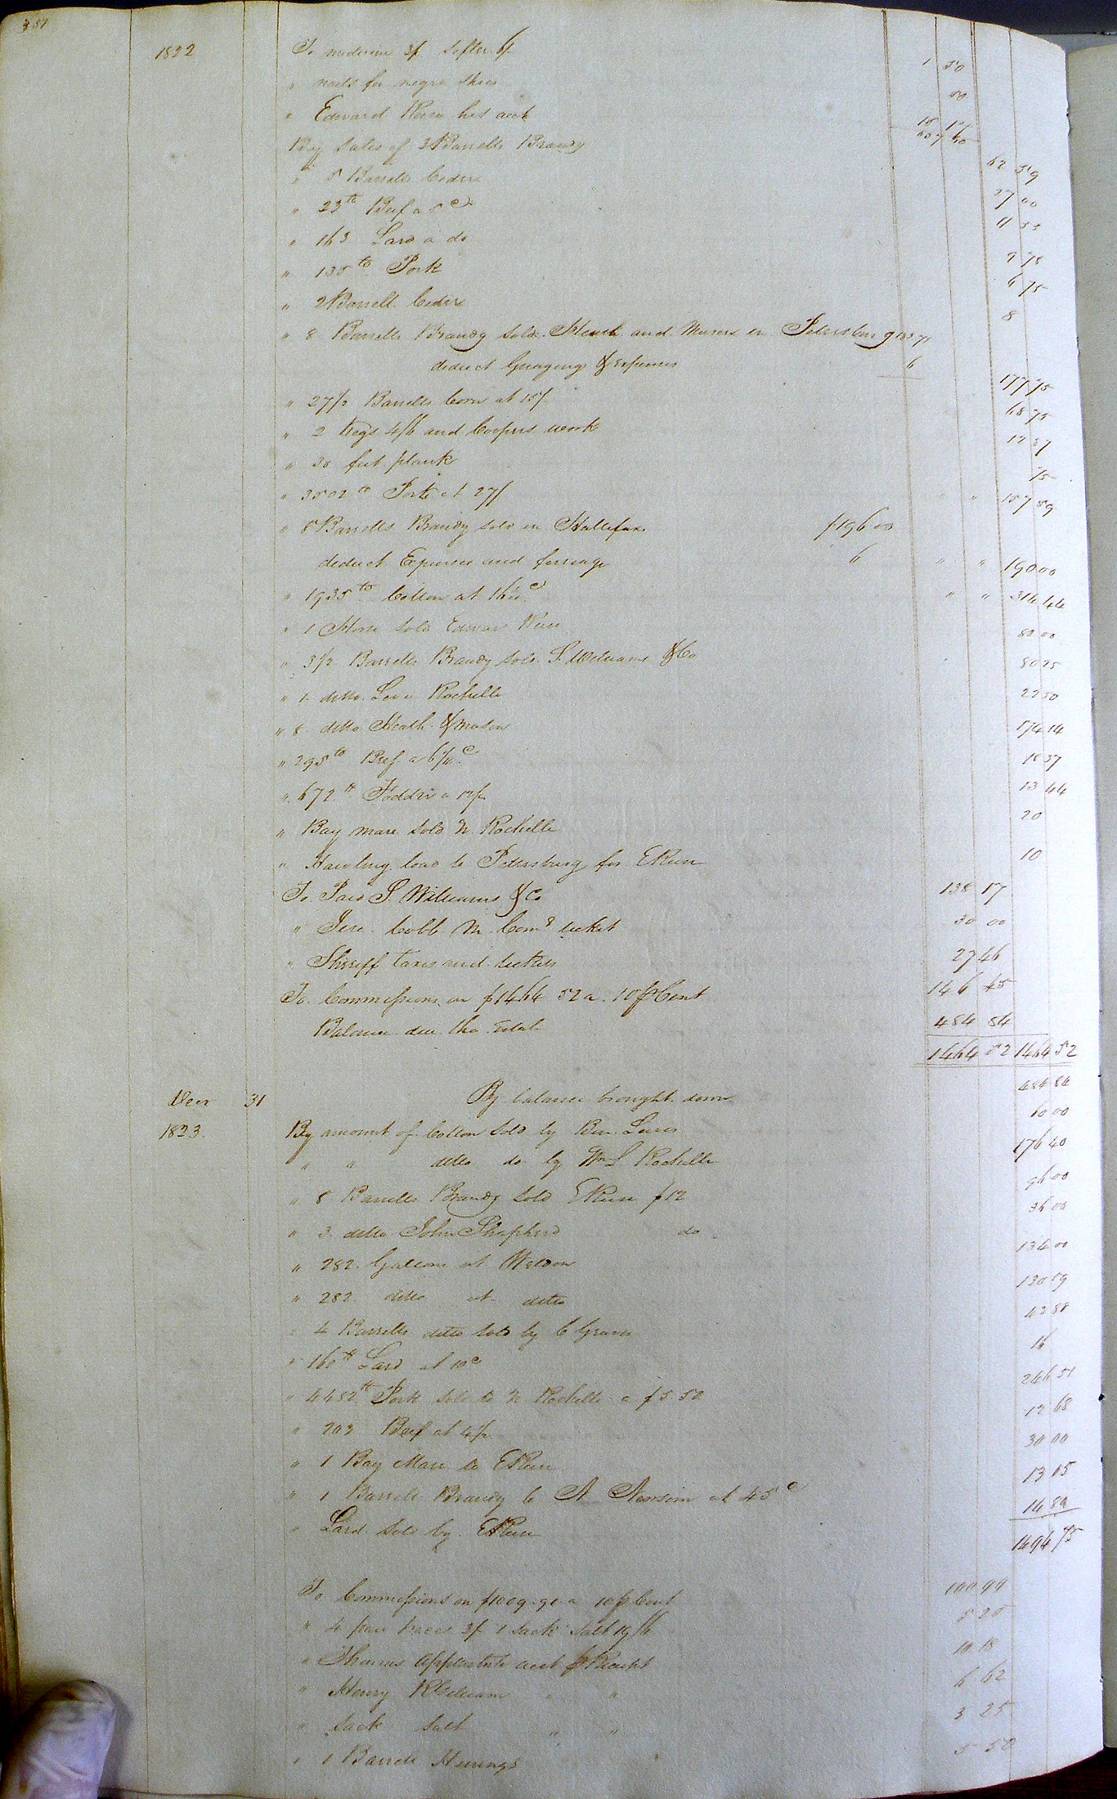 381
1822 To medicine 3/ Sifter 6/ 1 50
" nails for negro shoes 50
" Edward his acct
By Sales of 3 Barrells Brandy 62 59
" 5 Barrells Cider 27 00
" 23 lb Beef a 5 c 11 55
" 163 Lard a do
" 135 lb Pork 6 75
" 2 Barrell Cider 8
" 8 Barrells Brandy sold Heath and in Petersburg
deduct Guaging & Expenses 6
177 75
" 27 1/2 Barrells Corn at 15/ 68 75
" 2 hogs and Coopers work 12 37
" 30 feet plank 75
" 3502 lb Pork at 27/ 157 59
" 8 Barrells Brandy sold in Hallifax $196 00
deduct Expenses and ferriage 6 " " 190 00
" 1935 lb Cotton at 16 c " " 314 44
" 1 Horse sold Edward 80 00
" 3 1/2 Barrells Brandy sold S. Williams & Co 80 25
" 1 ditto Rochelle 22 50
" 8 ditto Heath & Mason 174 14
" 295 lb Beef a c 18 37
" 672 lb Fodder a 12/ 13 44
" Bay mare sold N Rochelle 20
" Hawling load to Petersburg for E 10
To Paid S. Williams & Co 138 17
" Jere Cobb ticket 30 00
" Sheriff taxes and tickets 27 46
To Commissions on $1464 52 a 10 p Cent 146 45
Balance due the Estate 484 84
1464 52 1464 52
Decr 31 By balance brought down 484 84
1823 By amount of Cotton sold by Ben. 60 00
" " ditto do by Wm S Rochelle 176 40
" 8 Barrells Brandy sold E $12 96 00
" 3 ditto John Shepherd do 36 00
" 282 Gallons at Weldon 134 00
" 282 ditto at ditto 130 19
" 4 Barrells ditto sold by C 42 88
" 160 lb Lard at 10 c 16
" 4482 lb Pork sold to N Rochelle a $5 50 246 51
" 203 Beef at 12 68
" 1 Bay Mare to E 30 00
" 1 Barrell Brandy to at 45 c 13 05
" Lard sold by E 14 80
1494 75
To Commissions on $1009.90 a 10 p Cent 100 99
" 4 pair traces 3/ 1 sack Salt 19/6 5 25
" Thomas Applewhite acct p Receipt 10 18
" Henry " " 6 62
" Sack Salt " " 3 25
" 1 Barrell Herrings 5 50